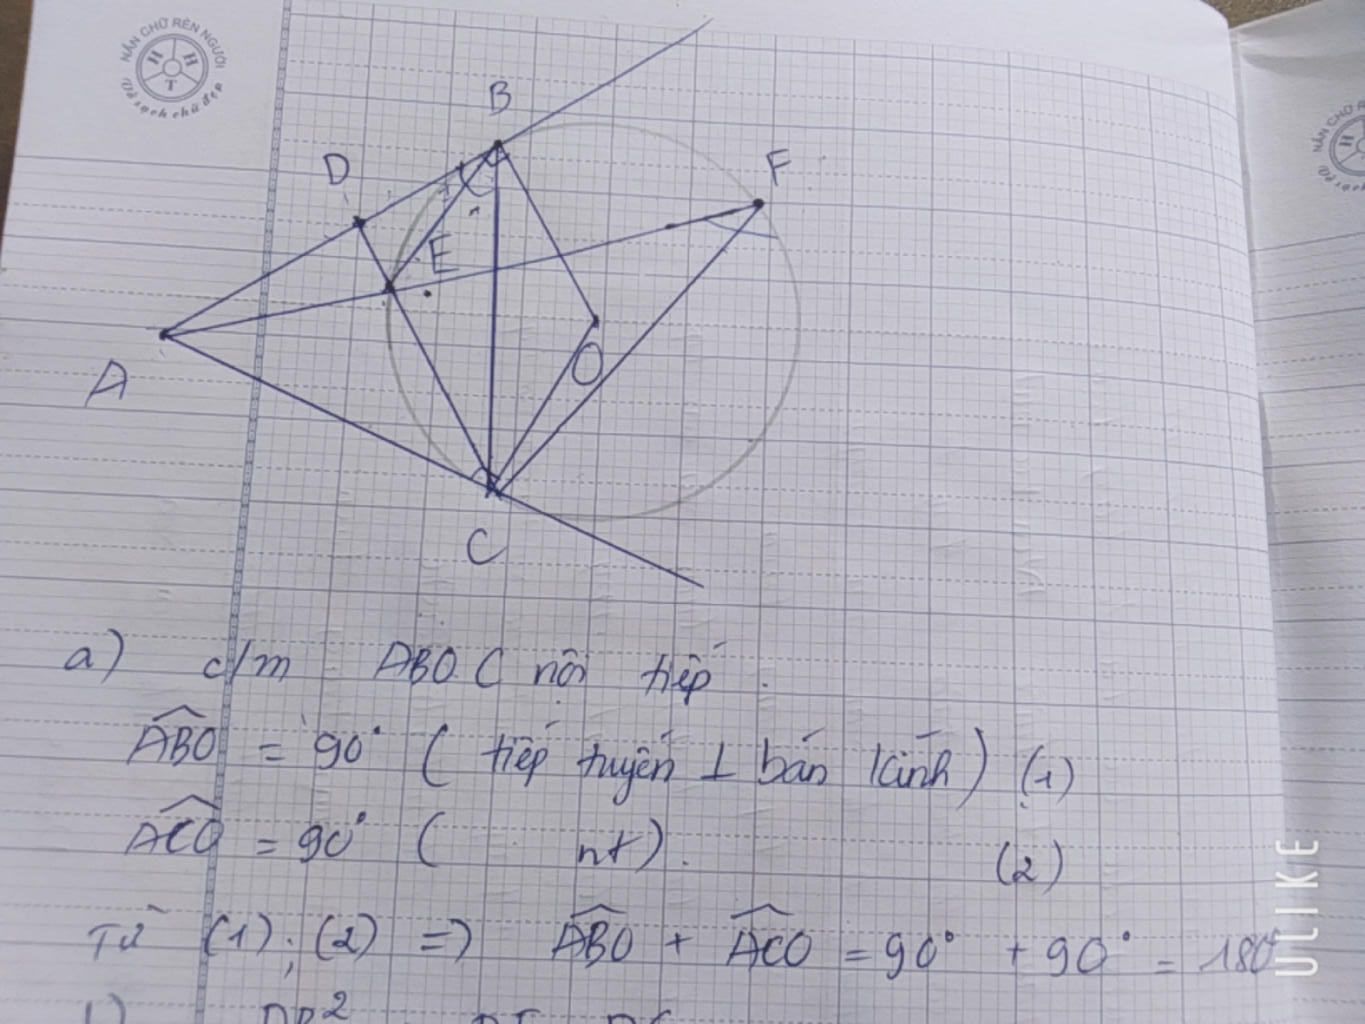 NẮN CHỮ RÈN NGƯỜI
H H
T
Vở sạch chữ đẹp
B
D
F
E
A
O
C
a) c/m ABOC nội tiếp.
ABO = 90° ( tiếp tuyến ⊥ bán kính) (1)
ACO = 90° ( nt). (2)
Từ (1); (2) => ABO + ACO = 90° + 90° = 180°
ULIKE